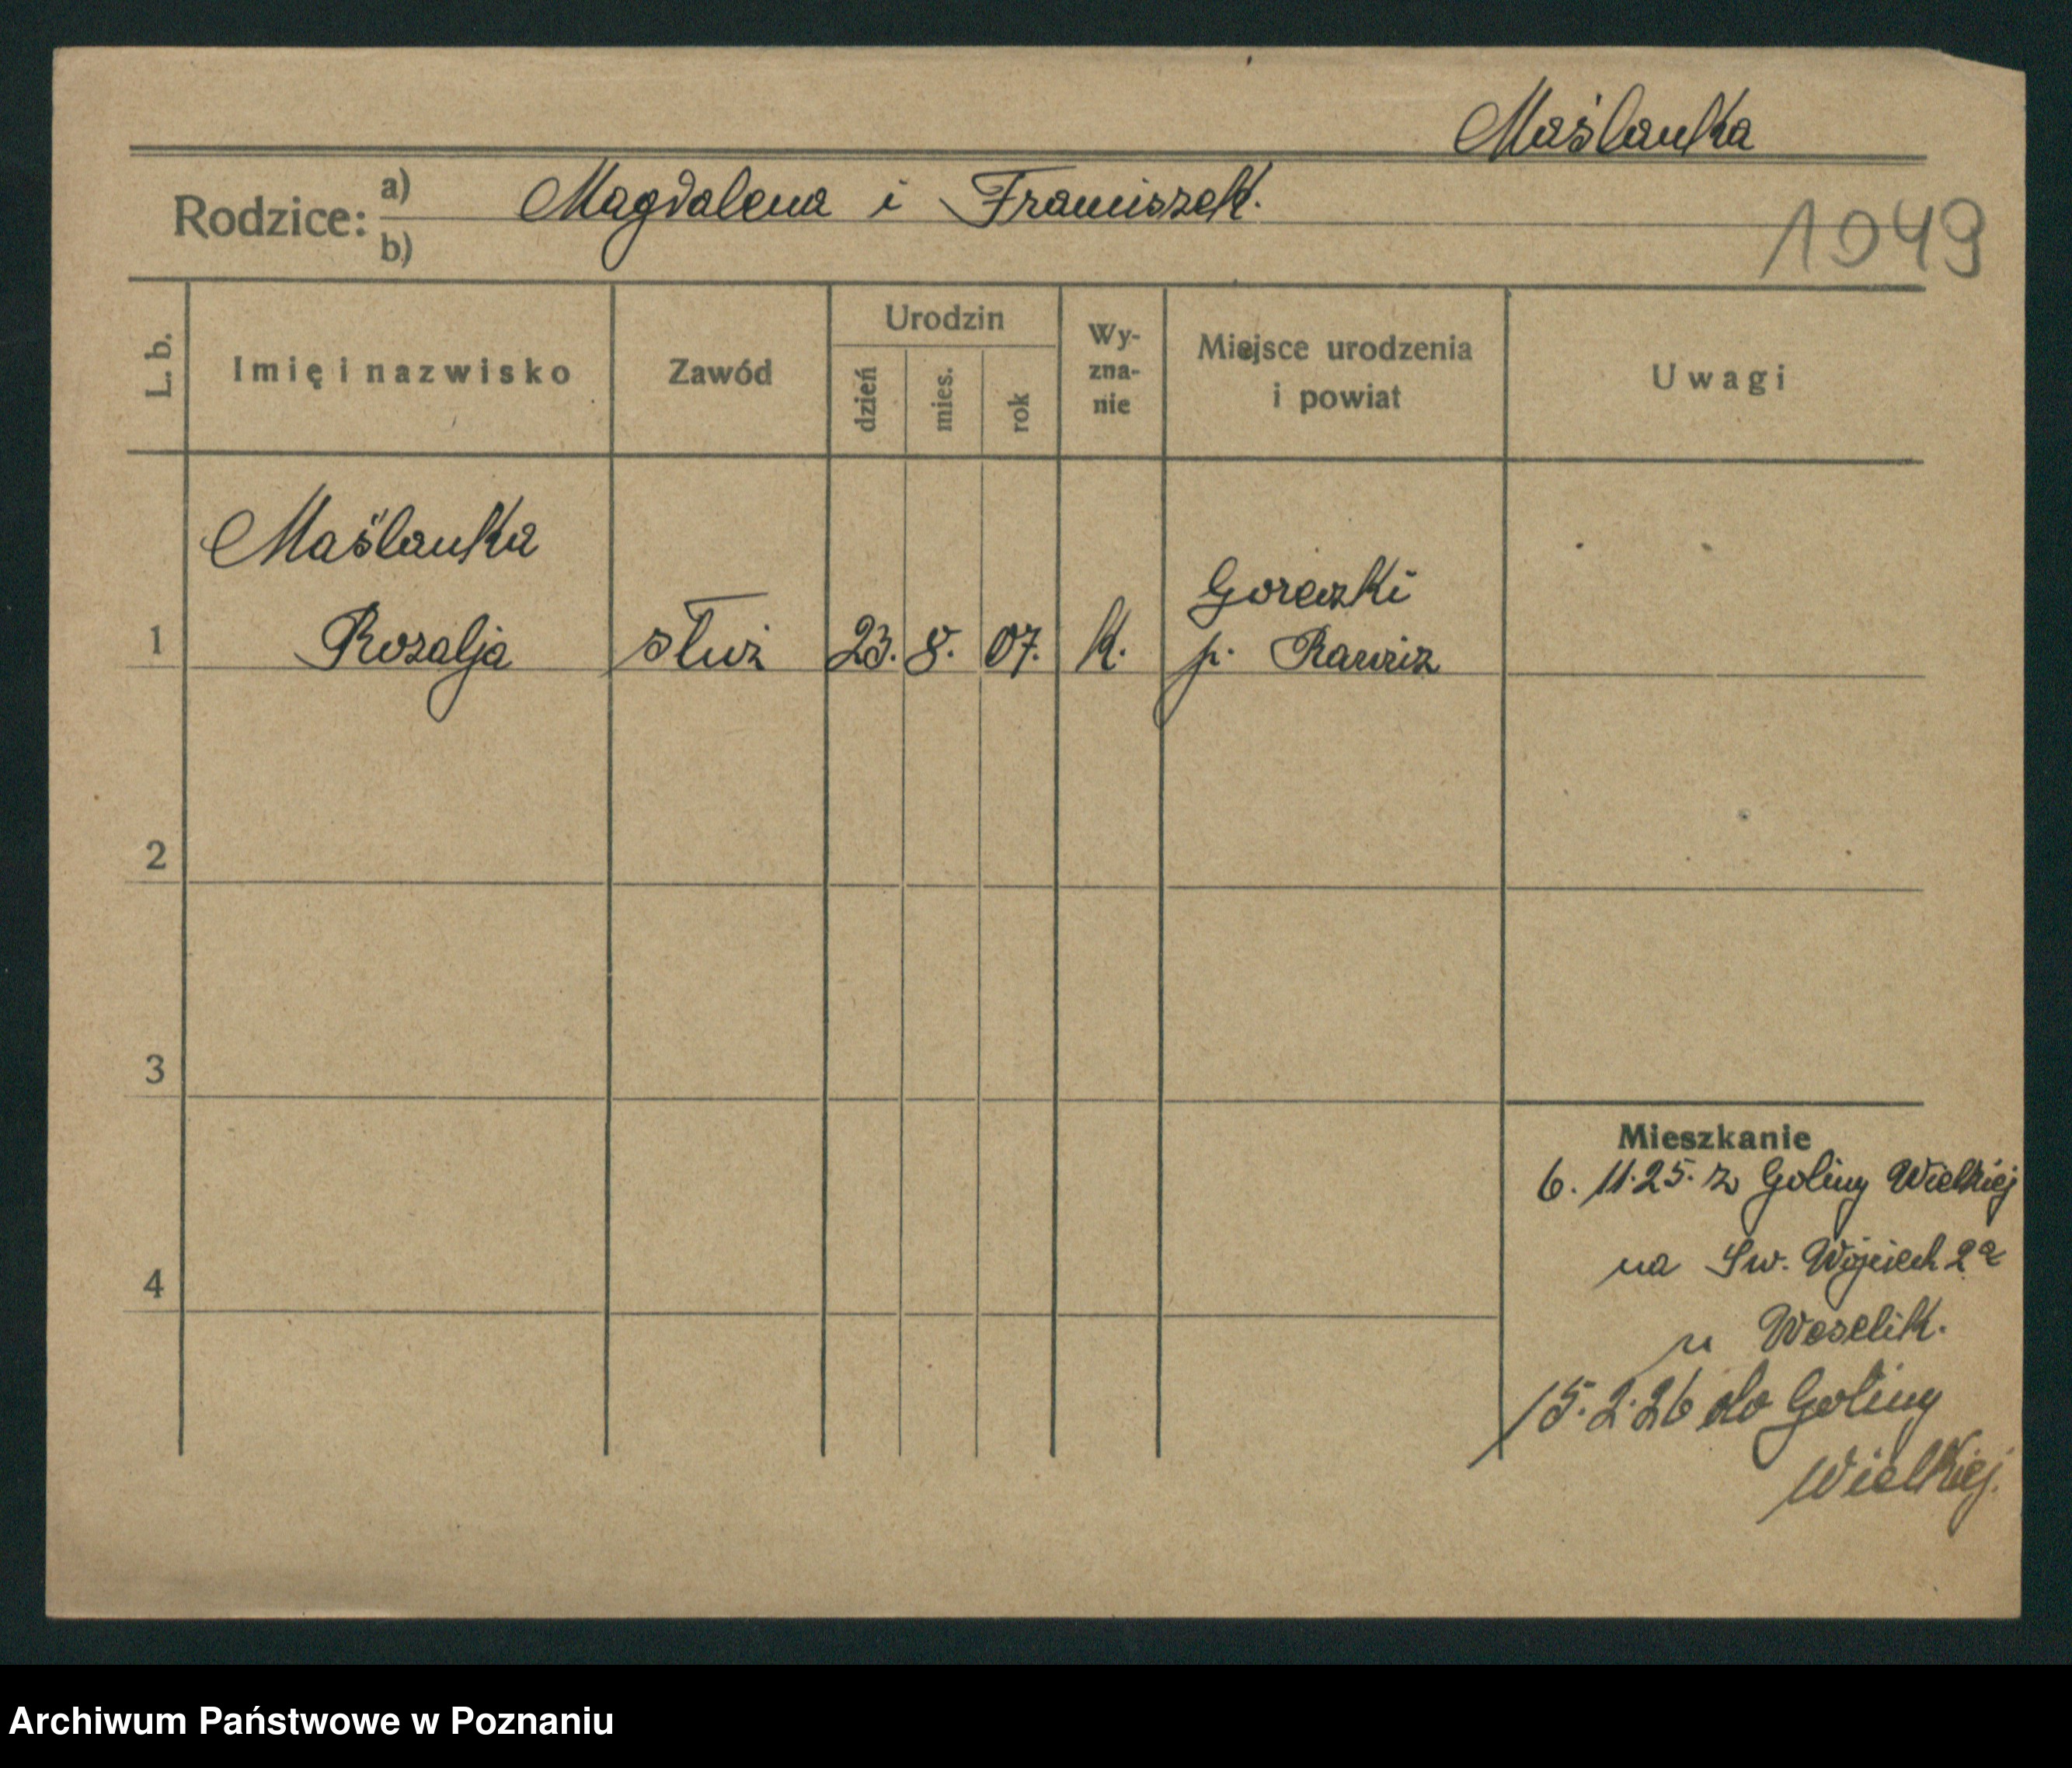 Maślanka
Rodzice: a) Magdalena i Franciszek.
b)
1949
L. b.
Imię i nazwisko
Zawód
Urodzin
dzień
mies.
rok
Wy-
zna-
nie
Miejsce urodzenia
i powiat
Uwagi
Maślanka
Goreczki
1 Rozalja służ 23. 8. 07. K. p. Rawicz
2
3
4
Mieszkanie
6. 11.25. z Goliny Wielkiej
na Św. Wojciech 2a
u Weselik.
15.2.26 do Goliny
Wielkiej.
Archiwum Państwowe w Poznaniu